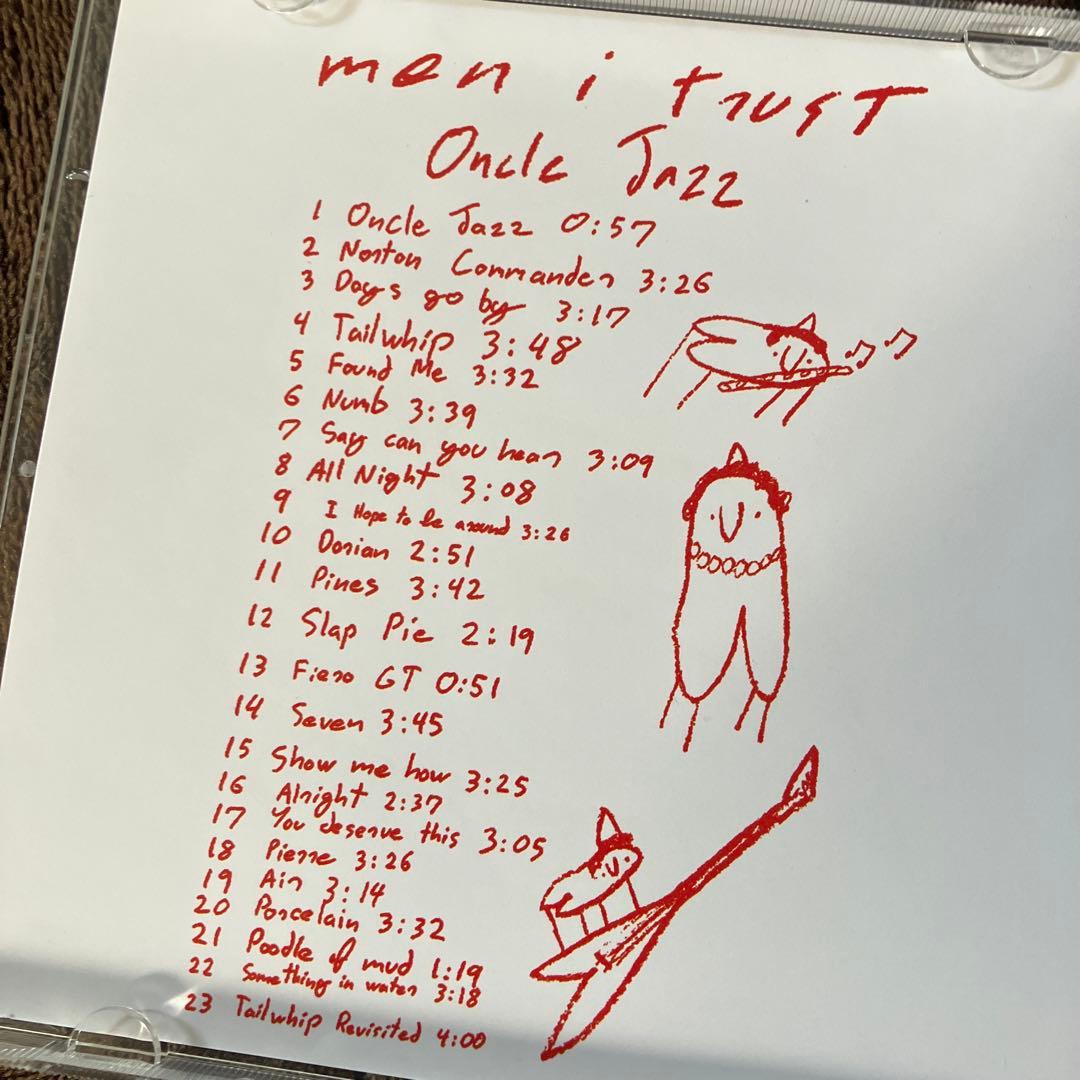 men i trust
Oncle Jazz
1 Oncle Jazz 0:57
2 Norton Commander 3:26
3 Days go by 3:17
4 Tailwhip 3:48
5 Found Me 3:32
6 Numb 3:39
7 Say can you hear 3:09
8 All Night 3:08
9 I Hope to be around 3:26
10 Dorian 2:51
11 Pines 3:42
12 Slap Pie 2:19
13 Fiero GT 0:51
14 Seven 3:45
15 Show me how 3:25
16 Alright 2:37
17 You deserve this 3:05
18 Pierre 3:26
19 Air 3:14
20 Porcelain 3:32
21 Poodle of mud 1:19
22 Something in water 3:18
23 Tailwhip Revisited 4:00